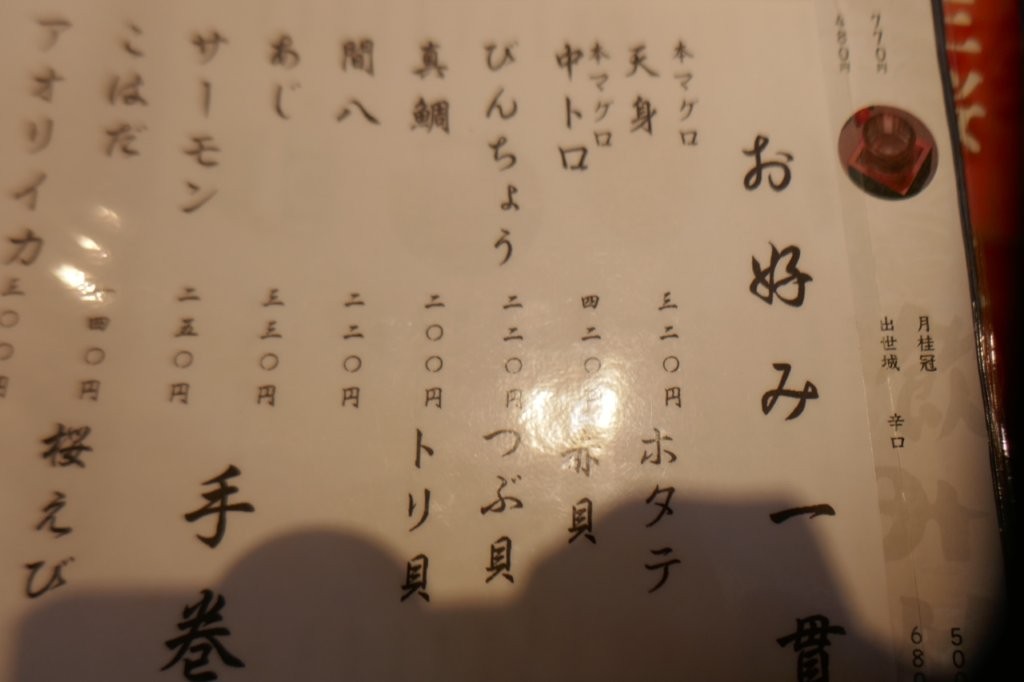 770円
680円
月桂冠
出世城 辛口
お好み一貫
本マグロ
天身 三二〇円
本マグロ
中トロ 四二〇円
びんちょう 二二〇円
真鯛 二〇〇円
間八 二二〇円
あじ 三三〇円
サーモン 二五〇円
こはだ 一四〇円
アオリイカ 三〇〇円
ホタテ
赤貝
つぶ貝
トリ貝
手巻
桜えび